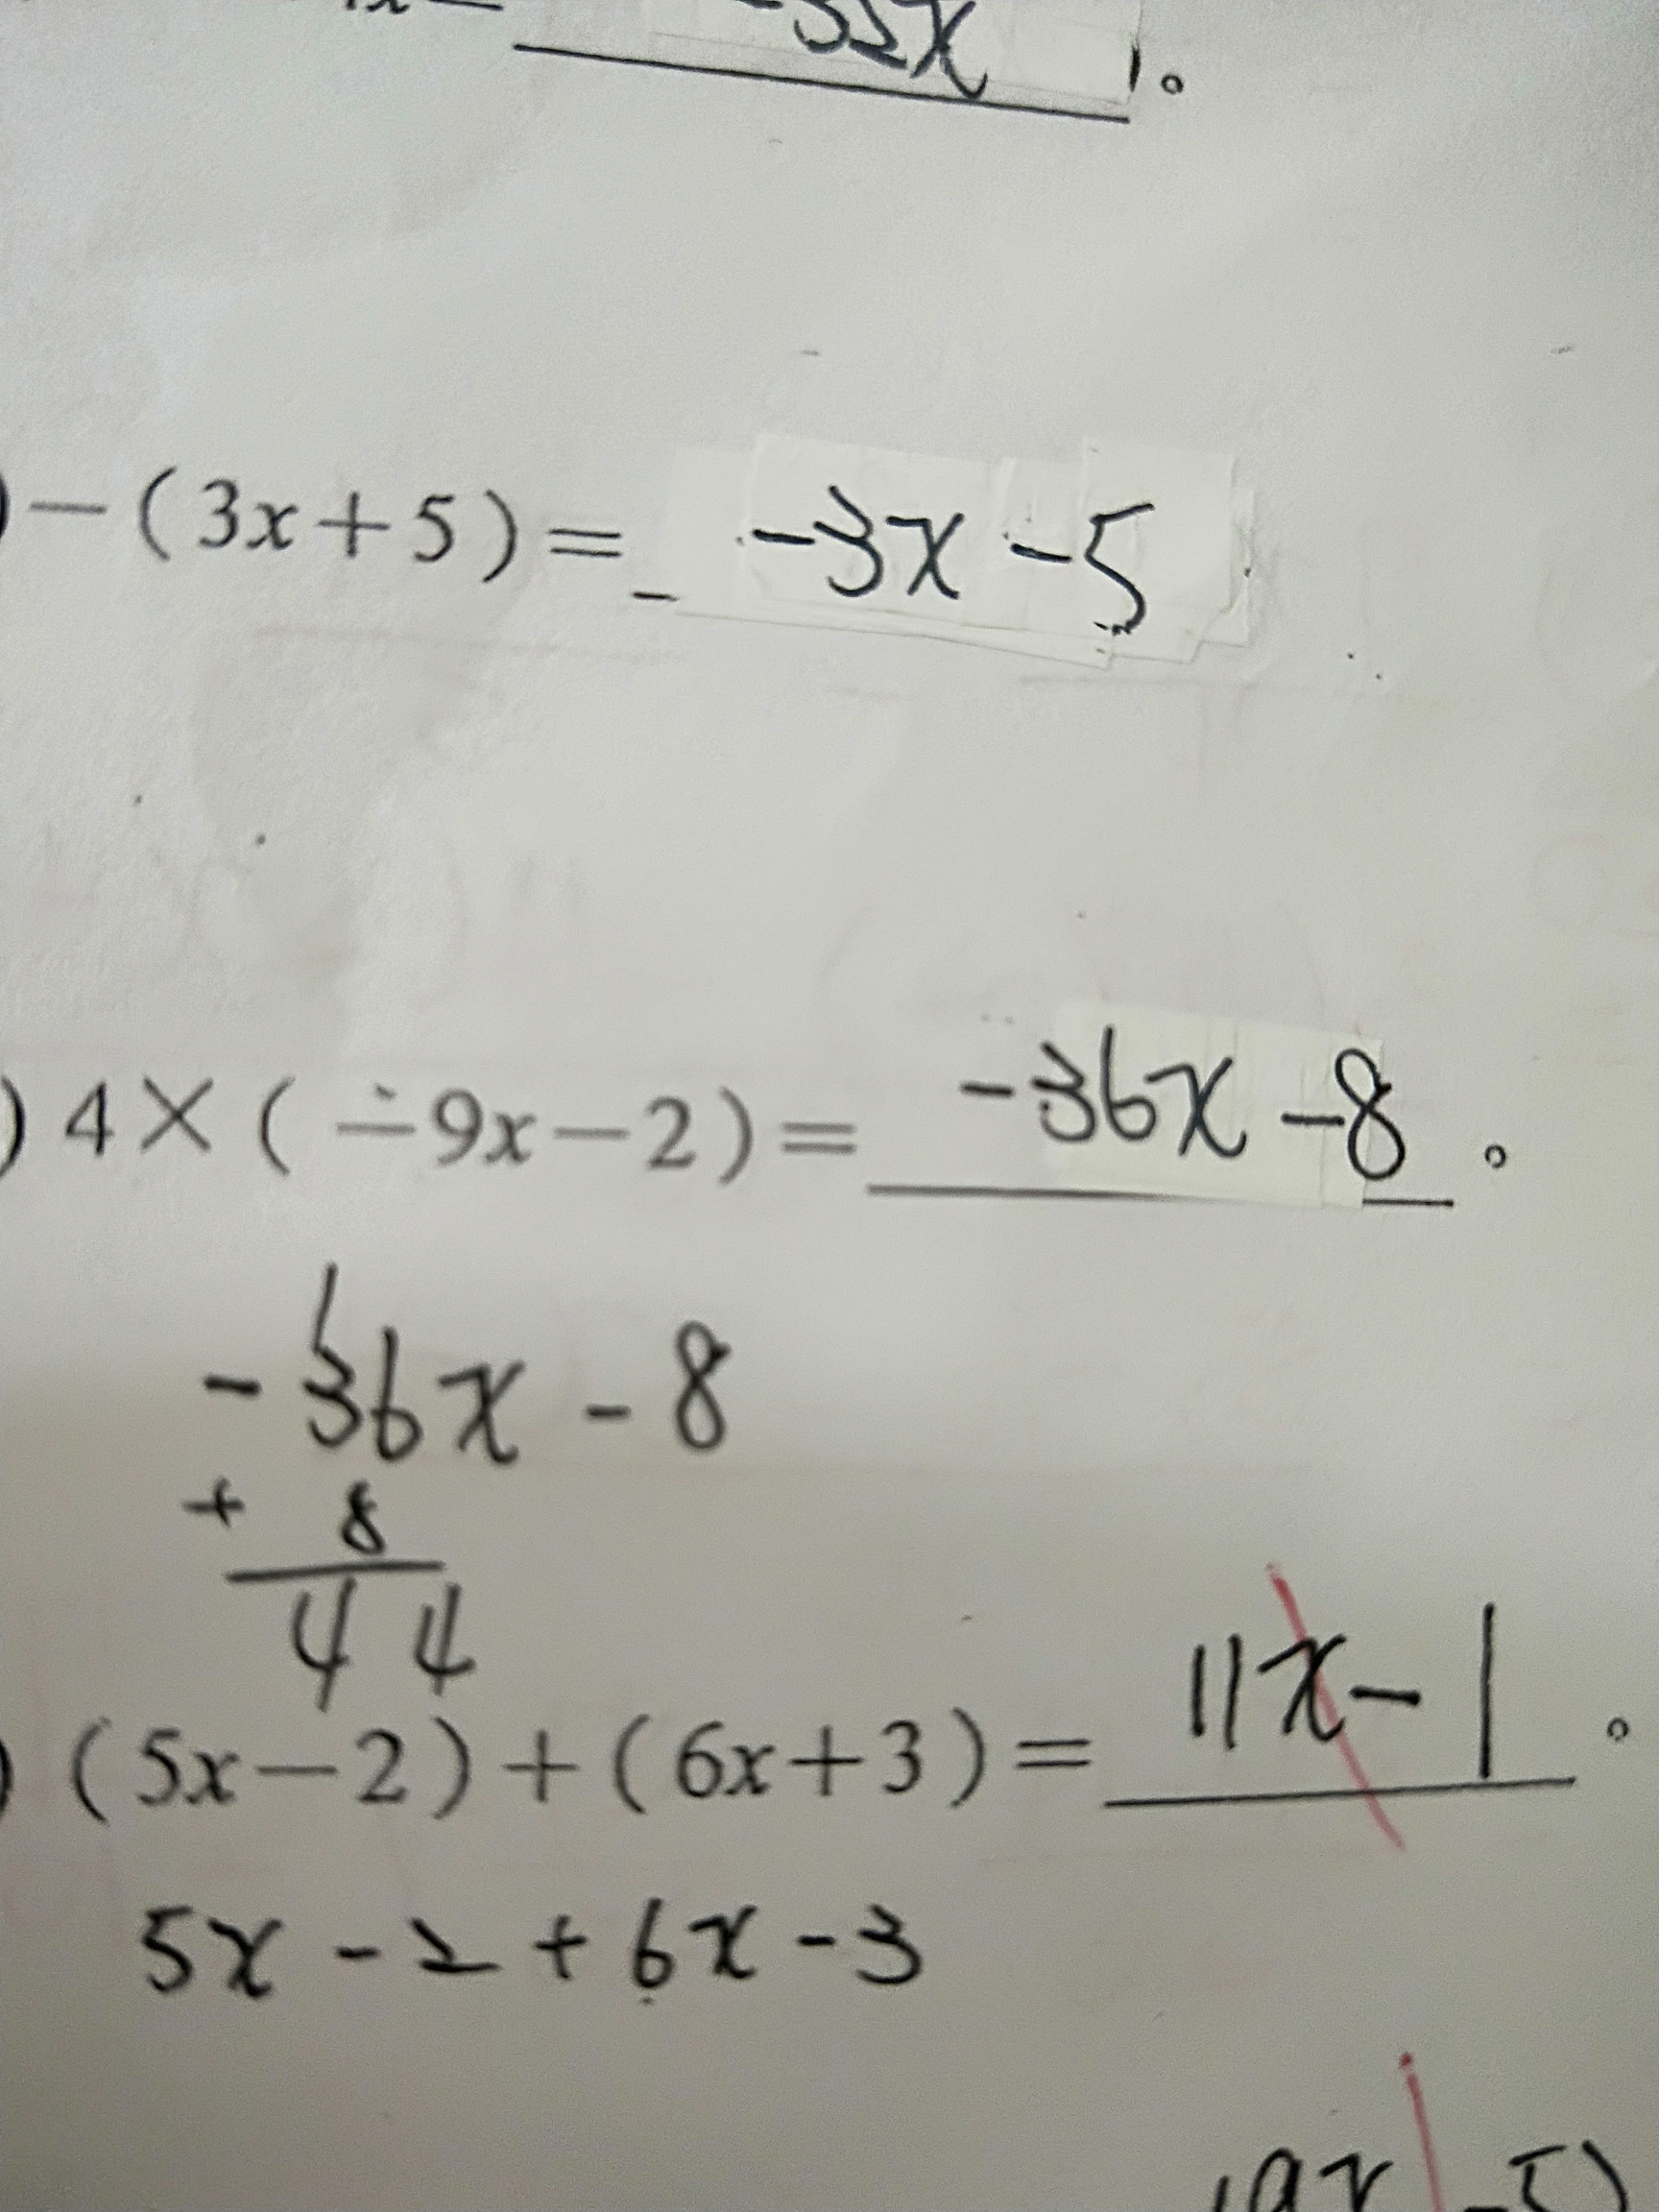 -32x 。
) -(3x+5)= -3x-5
) 4×(-9x-2)= -36x-8 。
-36x-8
+ 8
44
) (5x-2)+(6x+3)= 11x-1 。
5x-2+6x-3